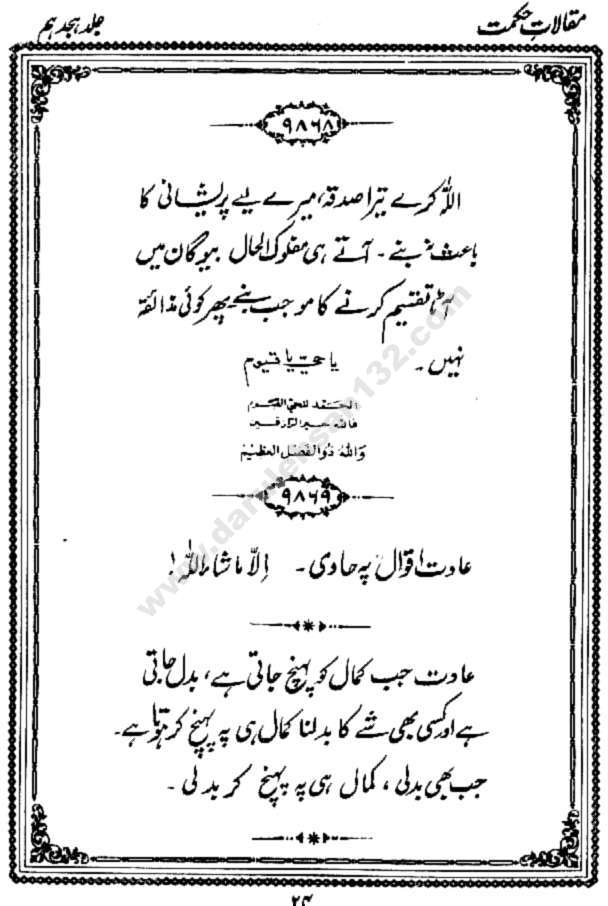 مقالاتِ حکمت
جلد ہجدہم
۹۸۶۸
اللہ کرے تیرا صدقہ، میرے لیے پریشانی کا
باعث نہ بنے ۔ آتے ہی مفلوک الحال بیوگان میں
آٹا تقسیم کرنے کا موجب بنے پھر کوئی مذائقہ
نہیں ۔ یا حیّ یا قیوم
الحمد للحی القیوم
فاللہ خیر الرازقین
وَاللہُ ذُوالفَضلِ العظیم
۹۸۶۹
عادت اقوال پہ حاوی ۔ اِلّا ماشاءاللہ!
عادت جب کمال کو پہنچ جاتی ہے، بدل جاتی
ہے اور کسی بھی شے کا بدلنا کمال ہی پہ پہنچ کر ہوتا ہے ۔
جب بھی بدلی، کمال ہی پہ پہنچ کر بدلی ۔
۲۴
www.darulehsan132.com